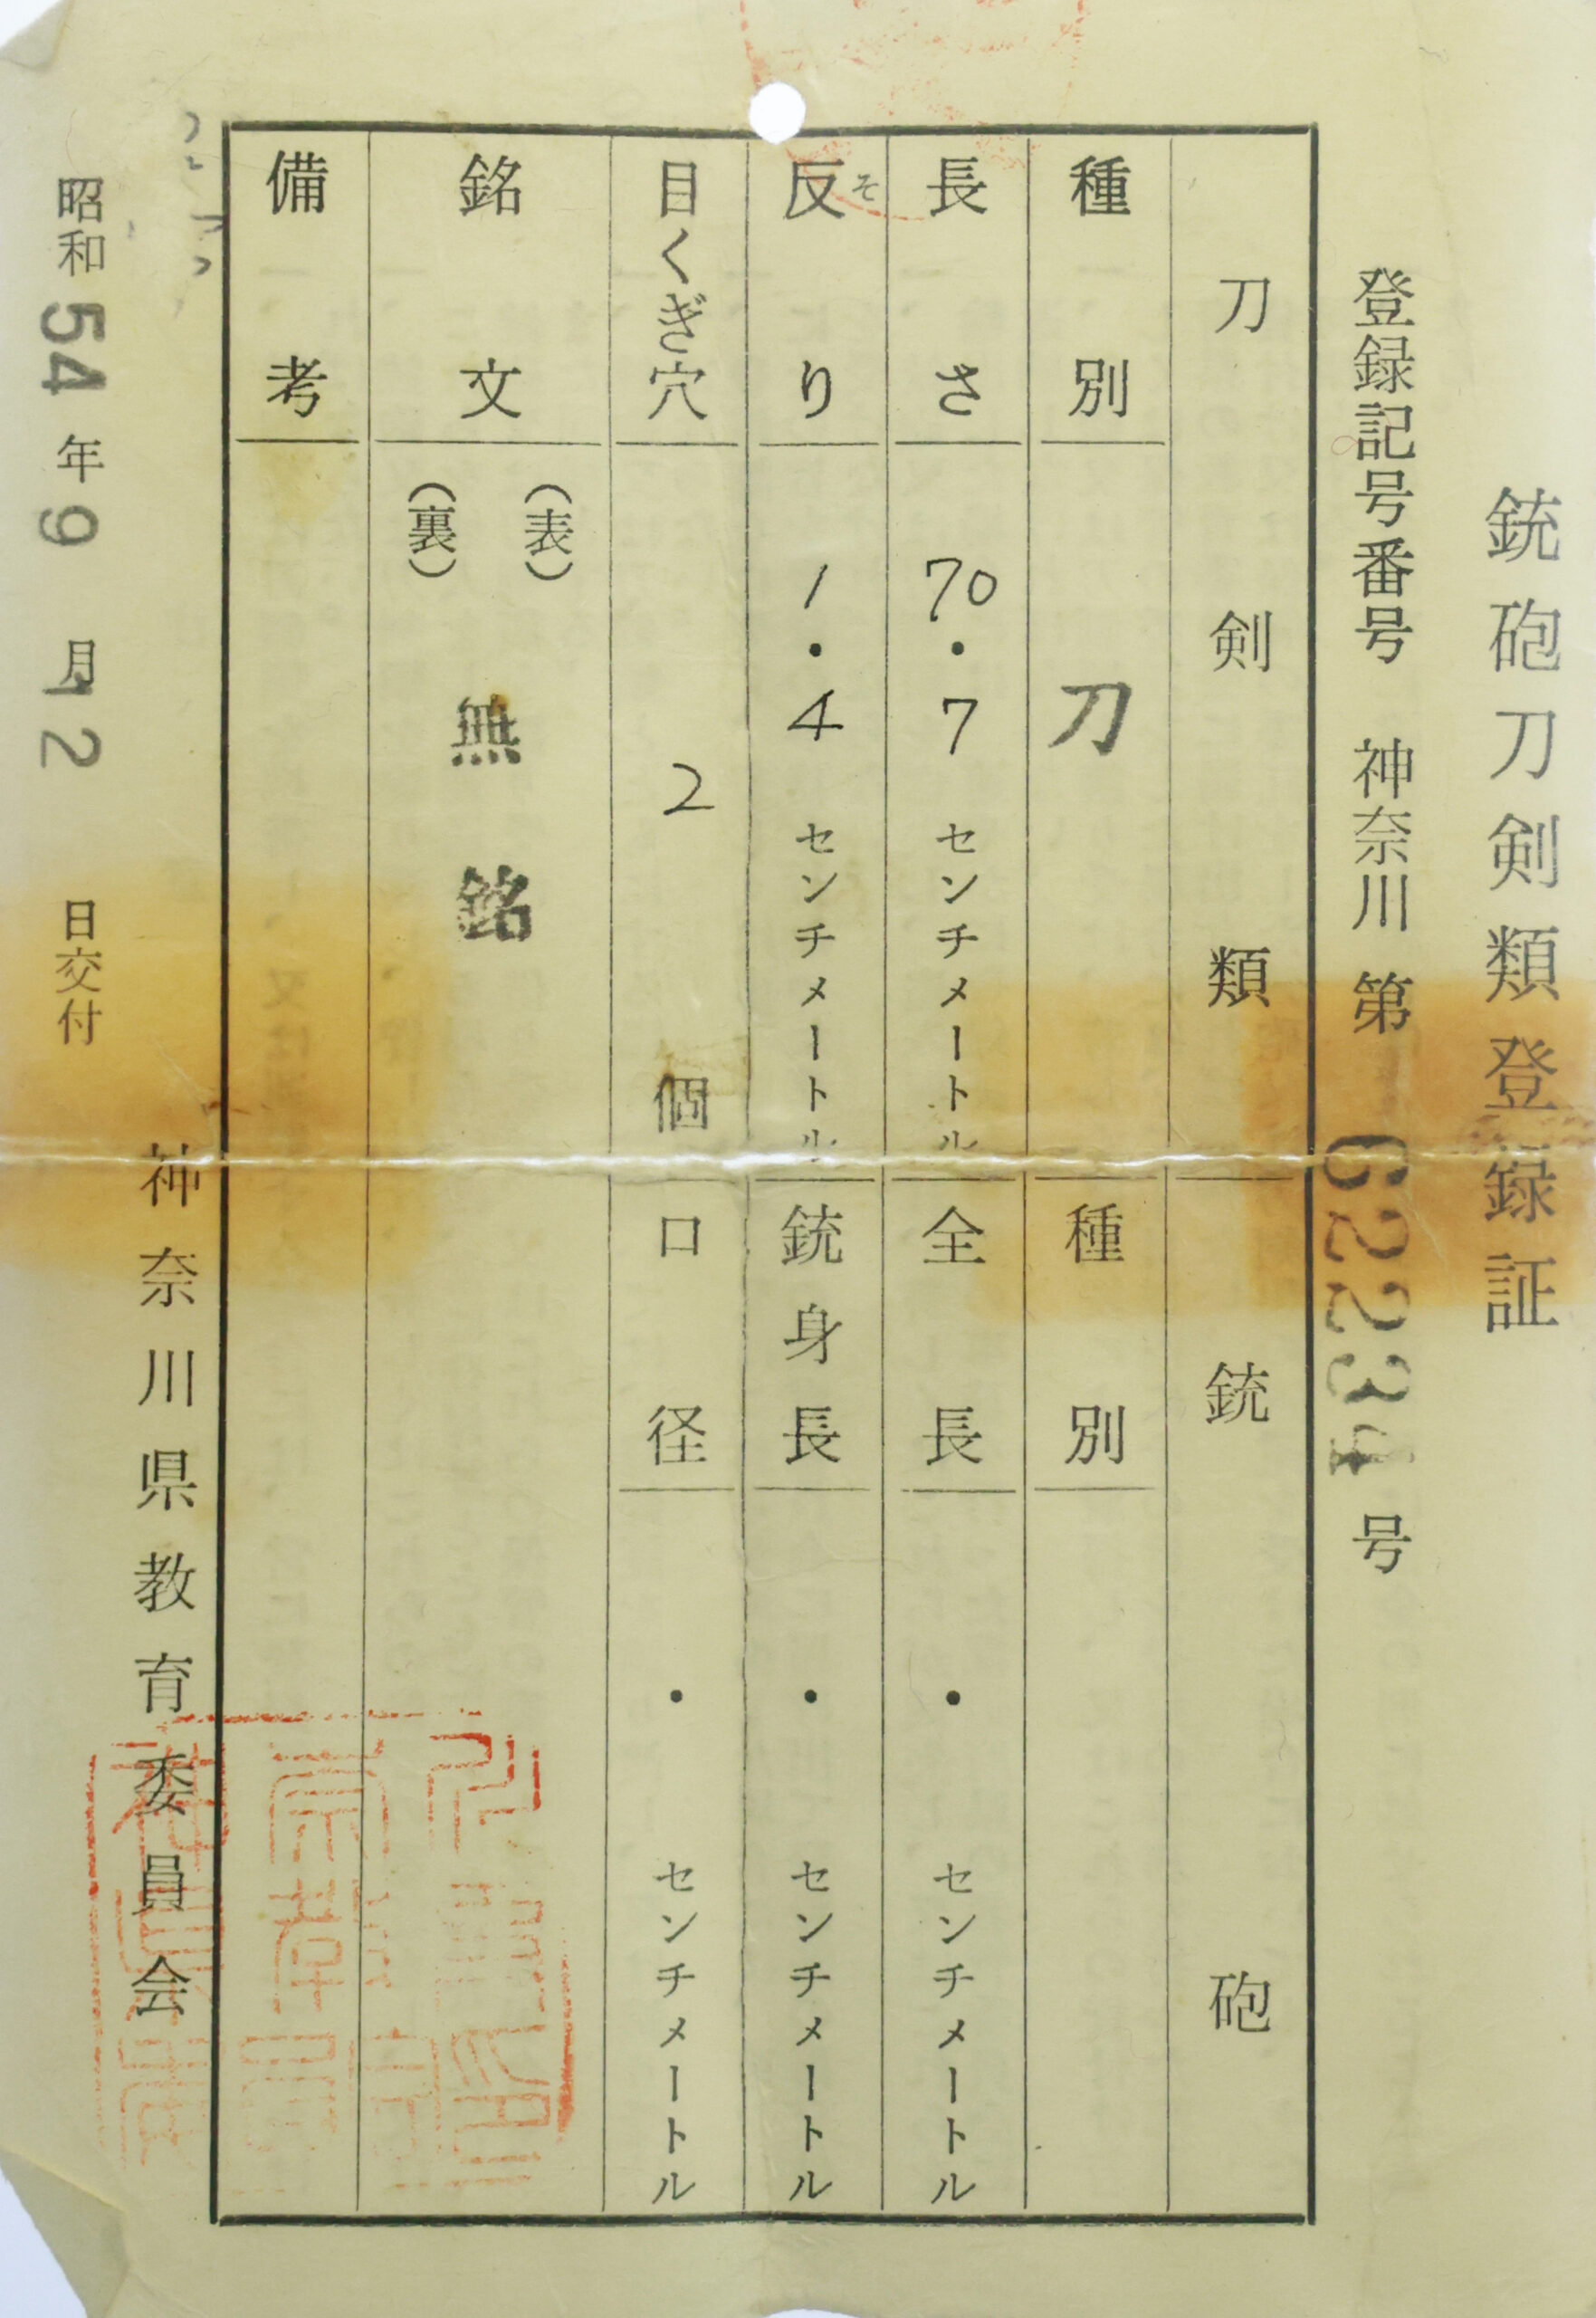 銃砲刀剣類登録証
登録記号番号 神奈川 第 62234 号
刀剣類
種別 刀
長さ 70・7 センチメートル
反り そ 1・4 センチメートル
目くぎ穴 2 個
銘文 (表) (裏) 無銘
備考
銃砲
種別
全長 ・ センチメートル
銃身長 ・ センチメートル
口径 ・ センチメートル
神奈川県教育委員会
昭和 54 年 9 月 12 日交付